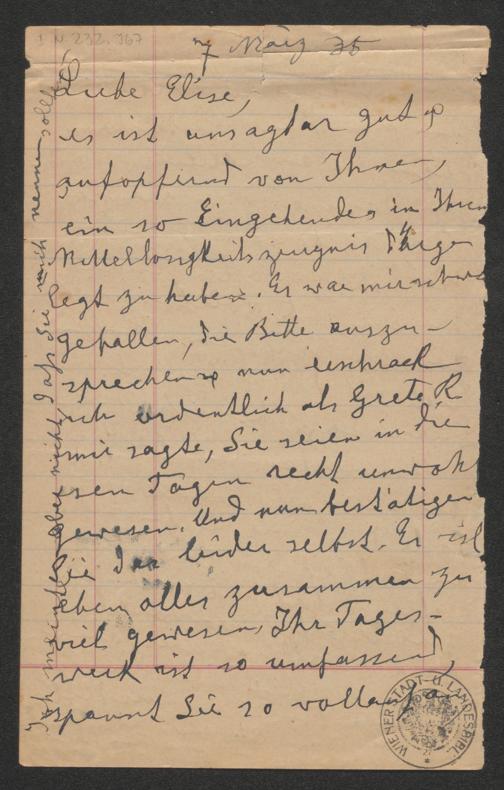 I N 232.767
7 März 35
Liebe Elise,
es ist unsagbar gut &
aufopfernd von Ihnen,
ein so Eingehendes in Ihrem
Mittellosigkeitszeugnis
legt zu haben. Es war mir schwer
gefallen, die Bitte auszu-
sprechen & nun erschrack
ich ordentlich als Grete R
mir sagte, Sie seien in die
sen Tagen recht unwohl
gewesen. Und nun bestätigen
Sie das leider selbst. Es ist
eben alles zusammen zu
viel gewesen, Ihr Tages-
werk ist so umfassend,
spannt Sie so voll
Ich meinte aber nicht, daß Sie mich nennen sollten
WIENER STADT- U. LANDESBIBL.